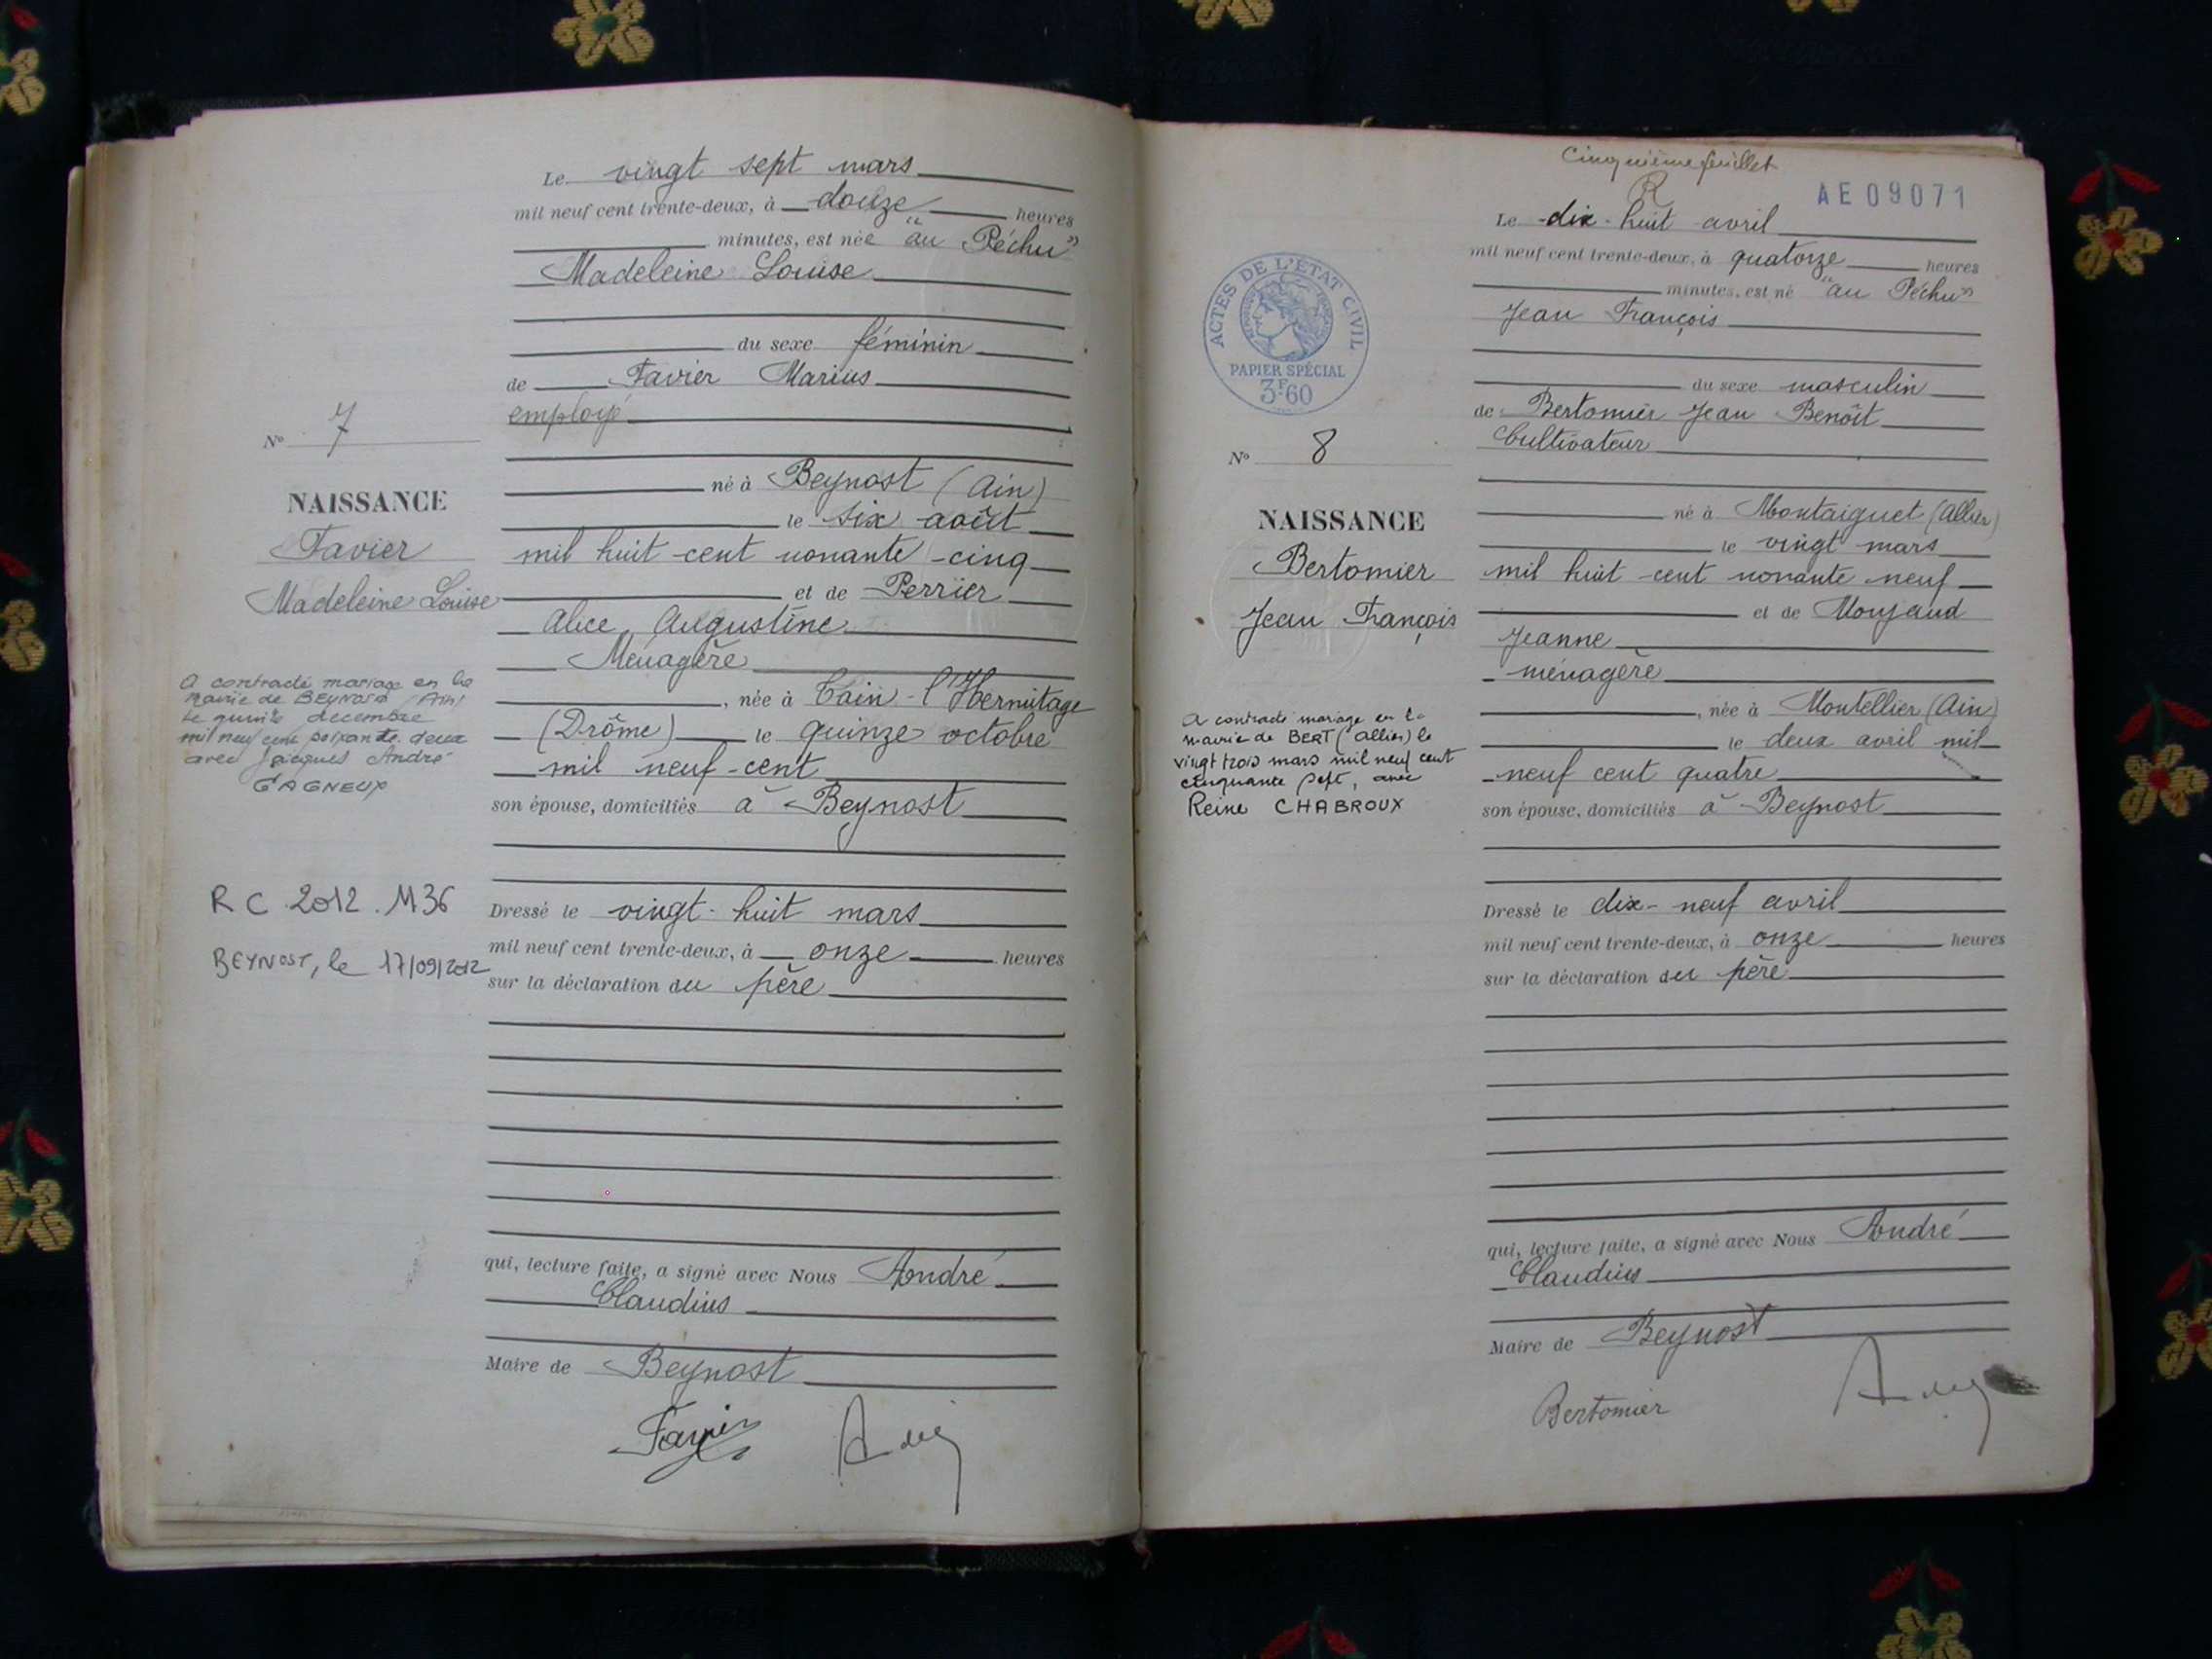 Le vingt sept mars
mil neuf cent trente-deux, à douze heures
minutes, est née "au Péchu"
Madeleine Louise
du sexe féminin
de Favier Marius
employé
né à Beynost (Ain)
le six août
mil huit cent nonante-cinq
et de Perrier
Alice, Augustine
Ménagère
, née à Tain-l'Hermitage
(Drôme) le quinze octobre
mil neuf-cent
son épouse, domiciliés à Beynost
Dressé le vingt-huit mars
mil neuf cent trente-deux, à onze heures
sur la déclaration du père
qui, lecture faite, a signé avec Nous André
Claudius
Maire de Beynost
Favier
N° 7
NAISSANCE
Favier
Madeleine Louise
A contracté mariage en la
mairie de BEYNOST (Ain)
le quinze décembre
mil neuf cent soixante deux
avec Jacques André
GAGNEUX
RC 2012. M36
BEYNOST, le 17/09/2012
Cinquième feuillet
R
AE09071
Le dix-huit avril
mil neuf cent trente-deux, à quatorze heures
minutes, est né "au Péchu"
Jean François
du sexe masculin
de Bertomier Jean Benoît
Cultivateur
né à Montaiguet (Allier)
le vingt mars
mil huit cent nonante neuf
et de Moujaud
Jeanne
ménagère
, née à Montellier (Ain)
le deux avril mil
neuf cent quatre
son épouse, domiciliés à Beynost
Dressé le dix-neuf avril
mil neuf cent trente-deux, à onze heures
sur la déclaration du père
qui, lecture faite, a signé avec Nous André
Claudius
Maire de Beynost
Bertomier
ACTES DE L'ÉTAT CIVIL
RÉPUBLIQUE FRANÇAISE
PAPIER SPÉCIAL
3F.60
N° 8
NAISSANCE
Bertomier
Jean François
A contracté mariage en la
mairie de BERT (Allier) le
vingt trois mars mil neuf cent
cinquante sept, avec
Reine CHABROUX